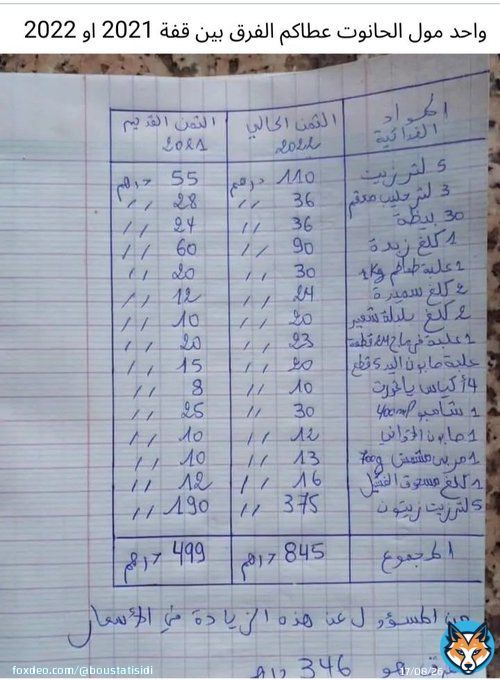 واحد مول الحانوت عطاكم الفرق بين قفة 2021 او 2022
المواد الغذائية | الثمن الحالي 2022 | الثمن القديم 2021
5 لتر زيت | 110 درهم | 55 درهم
3 لتر حليب معقم | 36 // | 28 //
30 بيضة | 36 // | 24 //
1 كلغ زبدة | 90 // | 60 //
1 علبة طماطم 1kg | 30 // | 20 //
2 كلغ سميدة | 24 // | 12 //
2 كلغ بلبلة شعير | 20 // | 10 //
1 علبة فرماج 24 قطعة | 23 // | 20 //
علبة صابون اليد 5 قطع | 20 // | 15 //
4 أكياس ياغورت | 10 // | 8 //
1 شامبو 400ml | 30 // | 25 //
1 صابون الأواني | 12 // | 10 //
1 مربى مشمش 700g | 13 // | 10 //
1 كلغ مسحوق الغسيل | 16 // | 12 //
5 لتر زيت زيتون | 375 // | 190 //
المجموع | 845 درهم | 499 درهم
من المسؤول عن هذه الزيادة في الأسعار
هو 346 درهم
foxdeo.com/@boustatisidi
17/08/26